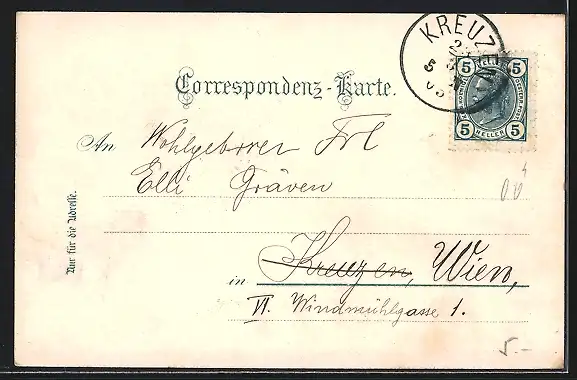 KREUZEN
5
5
HELLER
5
5
Correspondenz-Karte.
An Wohlgeboren Frl
Elli Gräven
Nur für die Adresse.
in Kreuzen, Wien,
VI. Windmühlgasse 1.
5.-